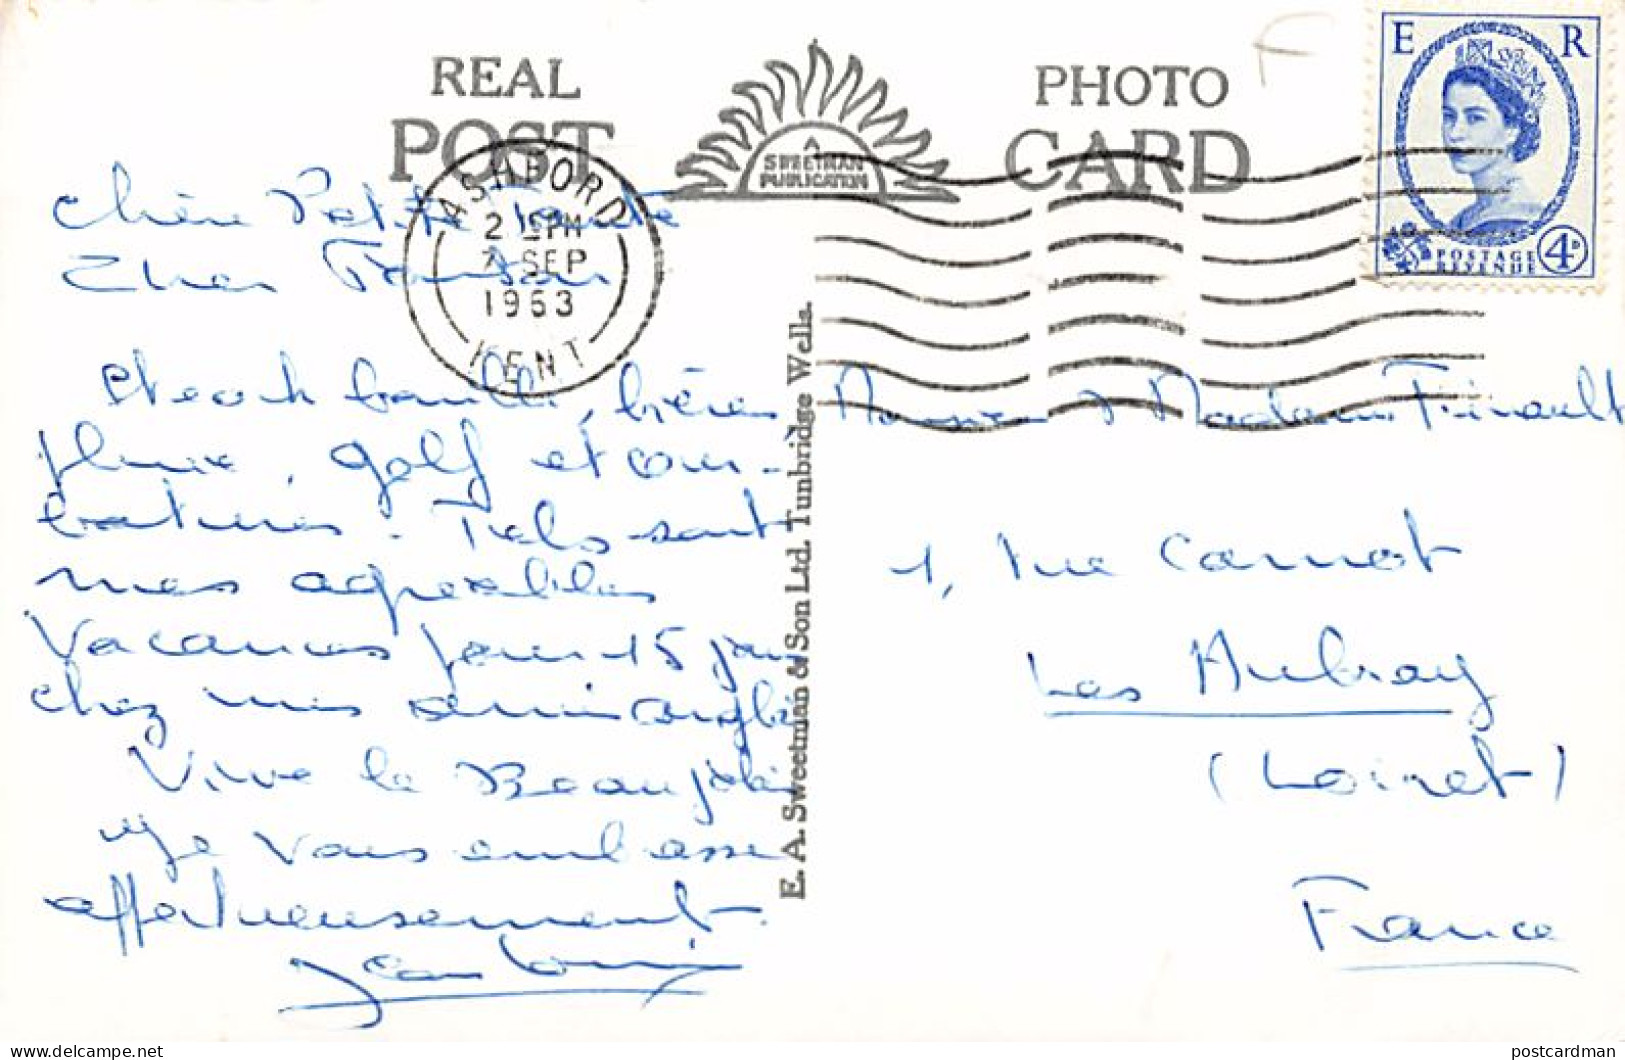 REAL PHOTO
POST CARD
A
SWEETMAN
PUBLICATION
E R
POSTAGE
REVENUE
4D
ASHFORD
2 15 PM
7 SEP
1963
KENT
E. A. Sweetman & Son Ltd. Tunbridge Wells.
Chère Petite Tante
Cher Tonton
Steack bouilli, bières
pluie, golf et cour-
batures. Tels sont
mes agréables
vacances pour 15 jours
chez mes amis anglais
Vive le Beaujolais
Je vous embrasse
affectueusement.
Jean Louis
Monsieur & Madame
1, rue Carnot
Les Aubray
(Loiret)
France
delcampe.net
postcardman